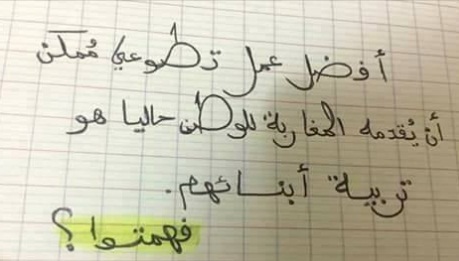 أفضل عمل تطوعي مُمكن
أن يُقدمه المغاربة للوطن حاليا هو
تربية أبنائهم.
فهمتوا؟